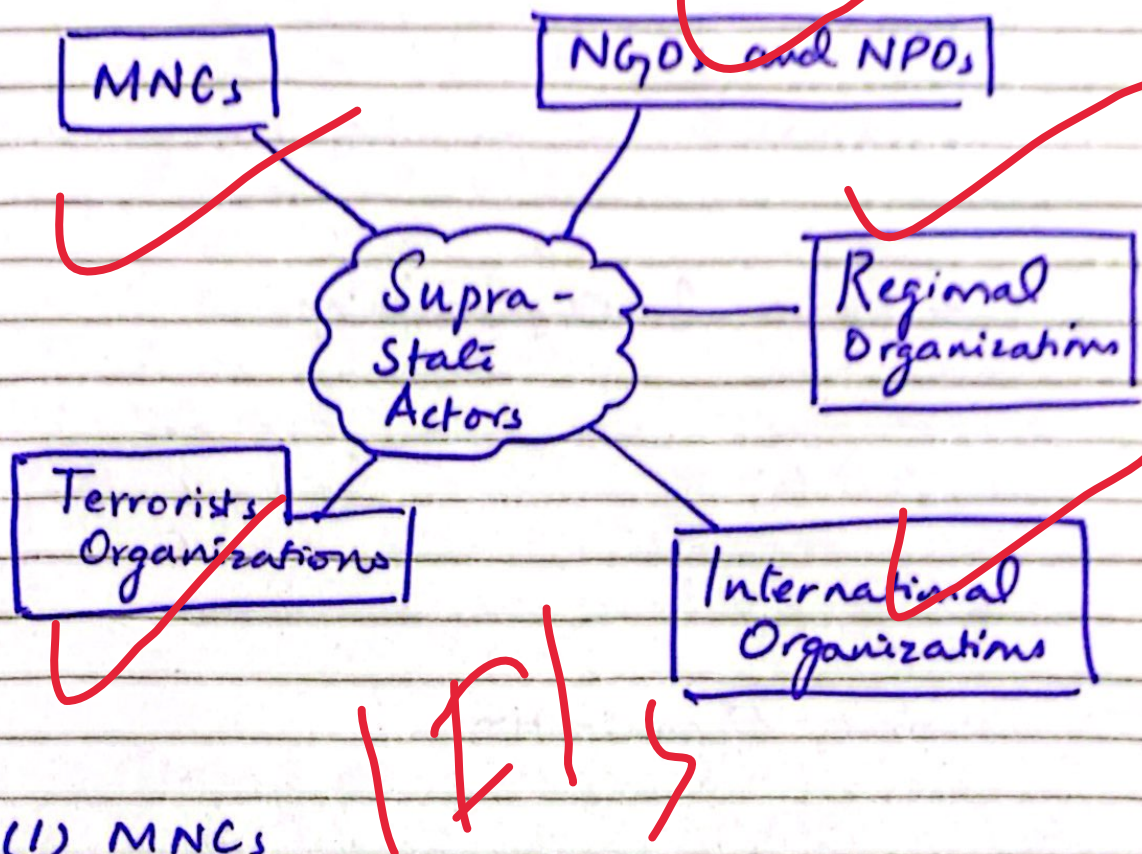 MNCs
NGOs and NPOs
Supra-
State
Actors
Regional
Organizations
Terrorists
Organizations
International
Organizations
(1) MNCs